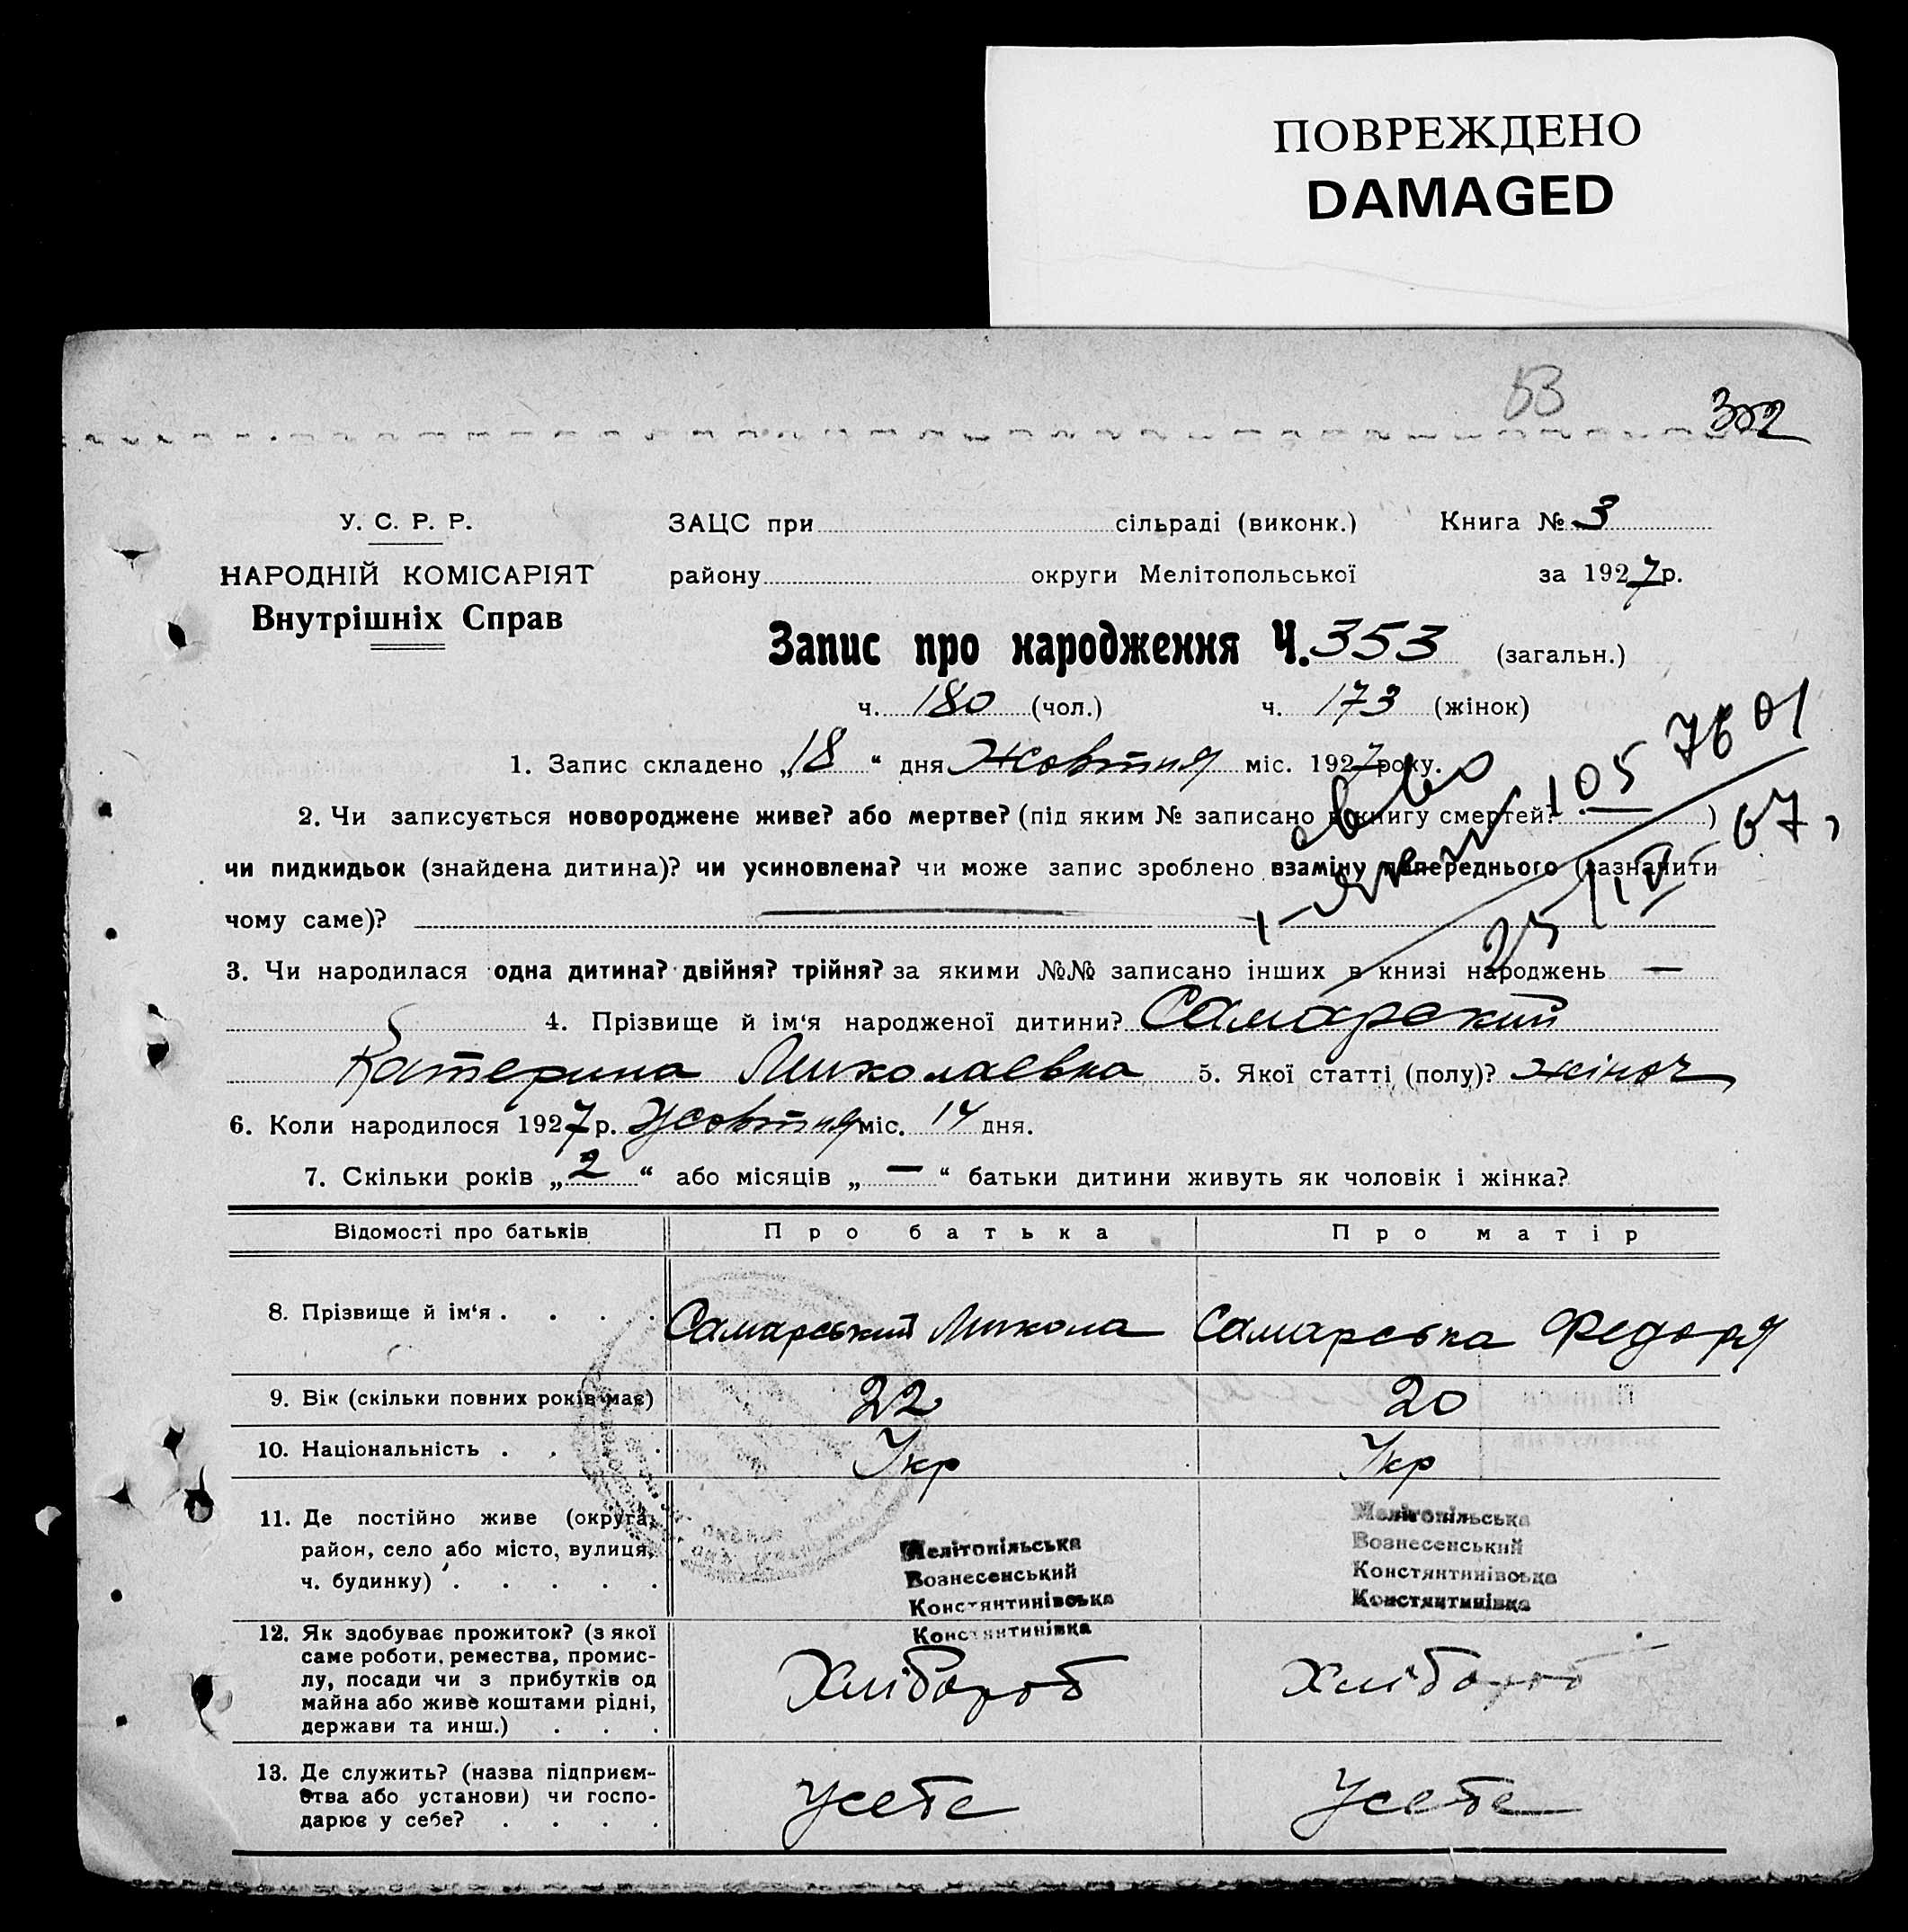 ПОВРЕЖДЕНО
DAMAGED
53
352
У. С. Р. Р.
НАРОДНІЙ КОМІСАРІЯТ
Внутрішніх Справ
ЗАЦС при сільраді (виконк.) Книга № 3
району округи Мелітопольської за 1927 р.
Запис про народження Ч. 353 (загальн.)
ч. 180 (чол.) ч. 173 (жінок)
1. Запис складено „18“ дня Жовтня міс. 1927 року.
2. Чи записується новороджене живе? або мертве? (під яким № записано в книгу смертей? )
чи пидкидьок (знайдена дитина)? чи усиновлена? чи може запис зроблено взаміну попереднього (зазначити
чому саме)?
105 7601
25/IV 67
3. Чи народилася одна дитина? двійня? трійня? за якими №№ записано інших в книзі народжень —
4. Прізвище й ім‘я народженої дитини? Самарский
Катерина Миколаевна 5. Якої статті (полу)? жіноч
6. Коли народилося 1927 р. Жовтня міс. 14 дня.
7. Скільки років „2“ або місяців „—“ батьки дитини живуть як чоловік і жінка?
Відомості про батьків Про батька Про матір
8. Прізвище й ім‘я . . . . Самарський Микола Самарська Федоря
9. Вік (скільки повних років має) 22 20
10. Національність . . . . Укр Укр
11. Де постійно живе (округа,
район, село або місто, вулиця,
ч. будинку) . . . . .
Мелітопільська
Вознесенський
Константинівська
Константинівка
Мелітопільська
Вознесенський
Константинівська
Константинівка
12. Як здобуває прожиток? (з якої
саме роботи, ремества, промис-
лу, посади чи з прибутків од
майна або живе коштами рідні,
держави та инш.) . . .
Хлібороб Хлібороб
13. Де служить? (назва підприєм-
ства або установи) чи госпо-
дарює у себе? . . . .
Усебе Усебе